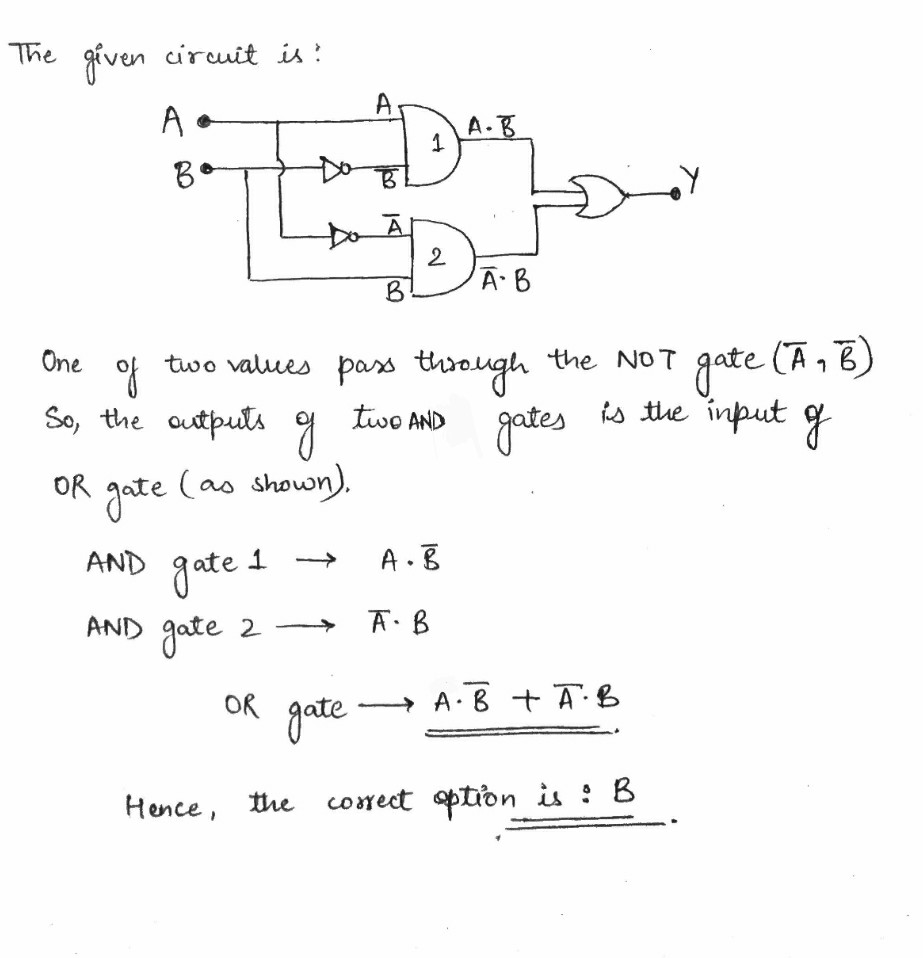 The given circuit is :
A
A
1
A · B̅
B
B̅
Y
A̅
2
B
A̅ · B
One of two values pass through the NOT gate (A̅ , B̅)
So, the outputs of two AND gates is the input of
OR gate (as shown).
AND gate 1 → A · B̅
AND gate 2 → A̅ · B
OR gate → A · B̅ + A̅ · B .
Hence, the correct option is : B .